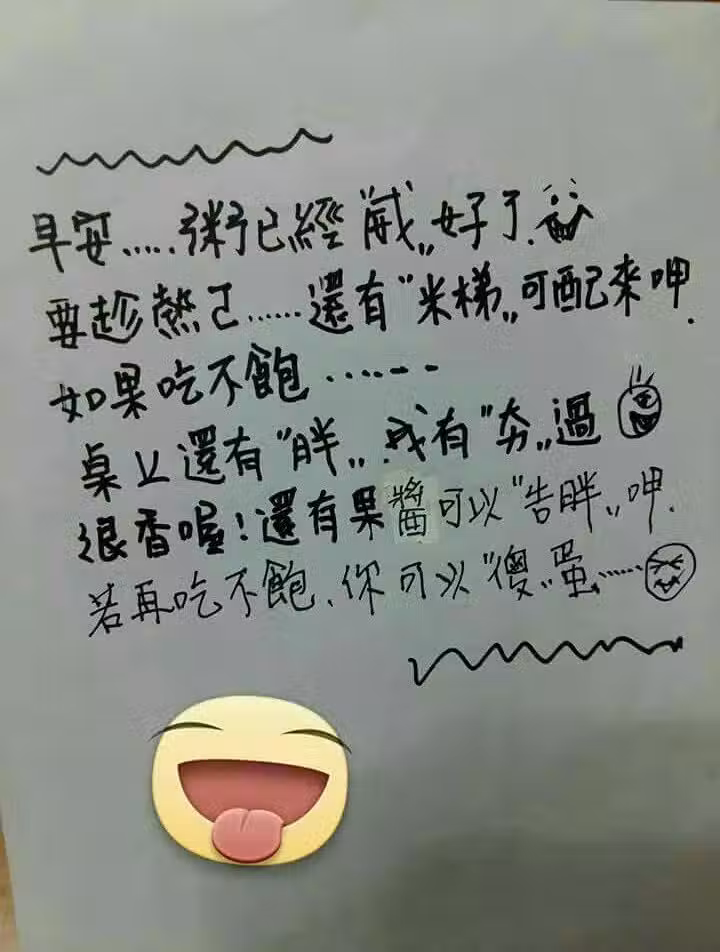 早安.....粥已經"威"好了.
要趁熱ㄛ......還有"米梯"可配來呷.
如果吃不飽......
桌上還有"胖"我有"夯"過
很香喔!還有果醬可以"告胖"呷.
若再吃不飽、你可以"傻"蛋......